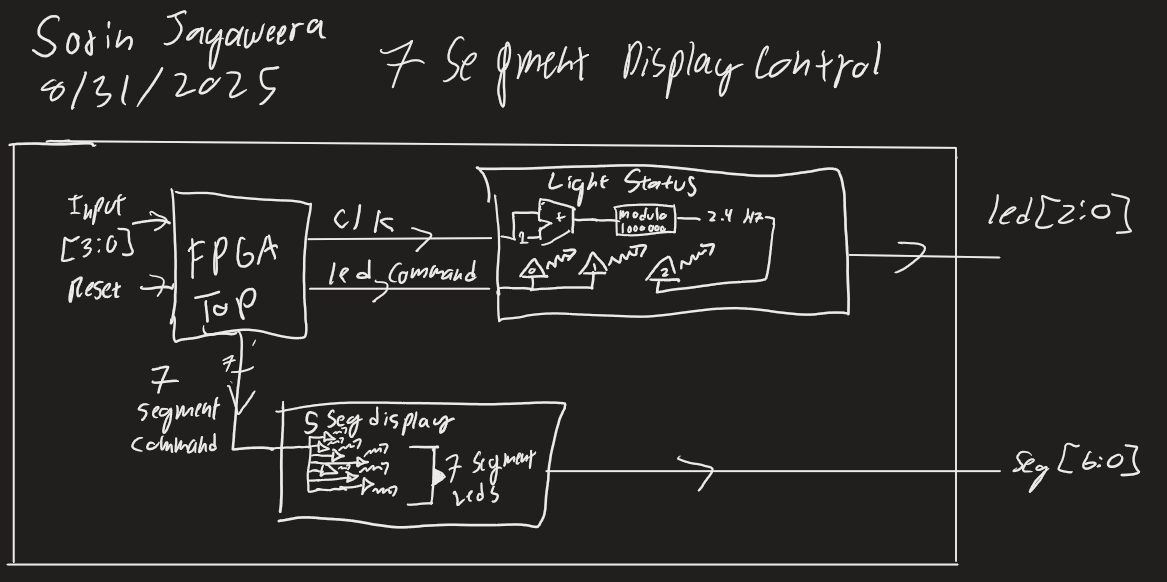 Sorin Jayaweera
8/31/2025
7 Segment Display Control
Input
[3:0]
Reset
FPGA
Top
clk
led_command
Light Status
2
+
modulo
1000000
2.4 Hz
0
1
2
led[2:0]
7
7
segment
command
5 Seg display
7 segment
Leds
seg[6:0]